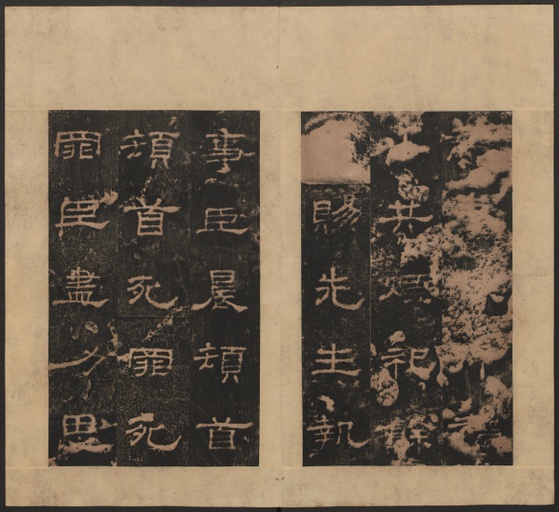 行禮
以共煙祀餘
賜先生執
事臣晨頓首
頓首死罪死
罪臣盡力思